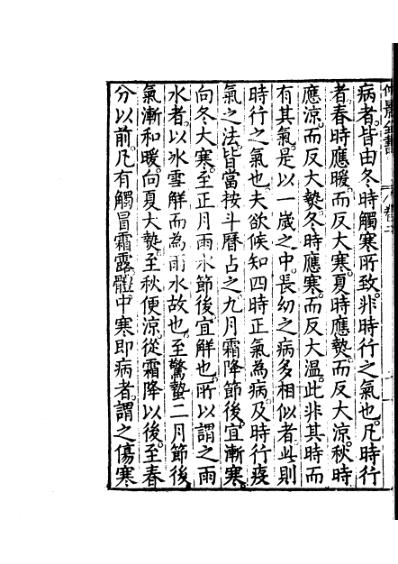 病者。皆由冬時觸寒所致。非時行之氣也。凡時行
者。春時應暖。而反大寒。夏時應熱。而反大涼。秋時
應涼。而反大熱。冬時應寒。而反大溫。此非其時而
有其氣。是以一歲之中。長幼之病多相似者。此則
時行之氣也。夫欲候知四時正氣為病。及時行疫
氣之法。皆當按斗曆占之。九月霜降節後。宜漸寒。
向冬大寒。至正月雨水節後。宜解也。所以謂之雨
水者。以冰雪解而為雨水故也。至驚蟄二月節後。
氣漸和暖。向夏大熱。至秋便涼。從霜降以後。至春
分以前。凡有觸冒霜露。體中寒即病者。謂之傷寒